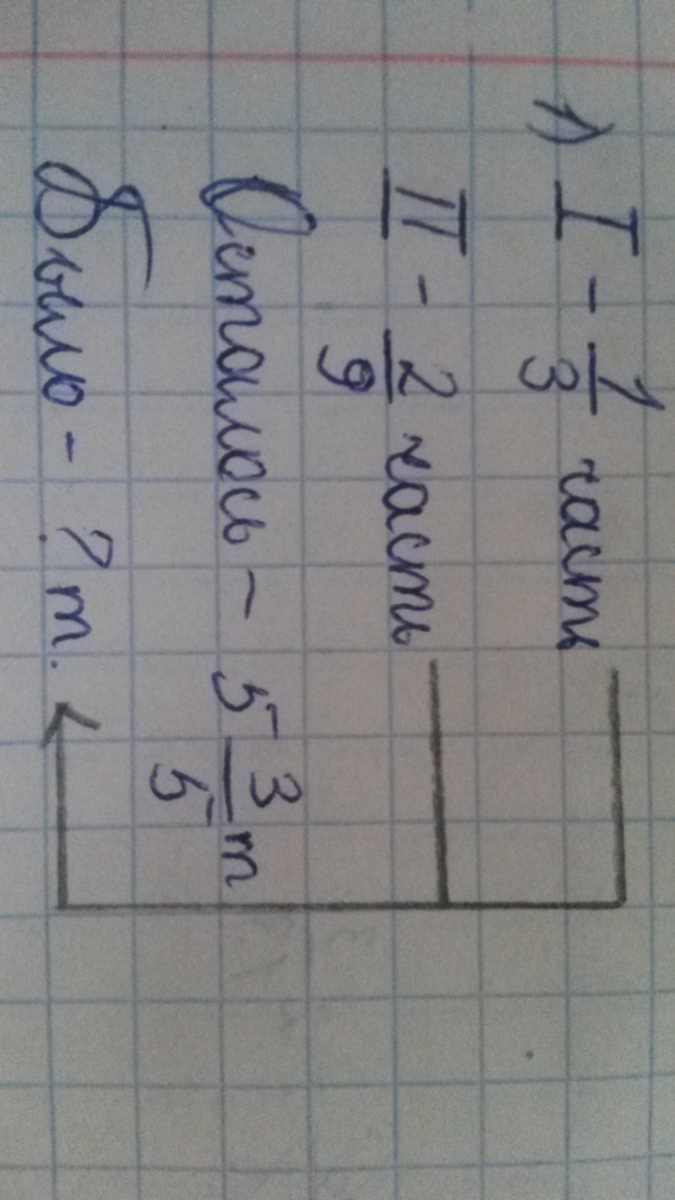 1) I - 1/3 часть
II - 2/9 часть
Осталось - 5 3/5 т
Было - ? т.